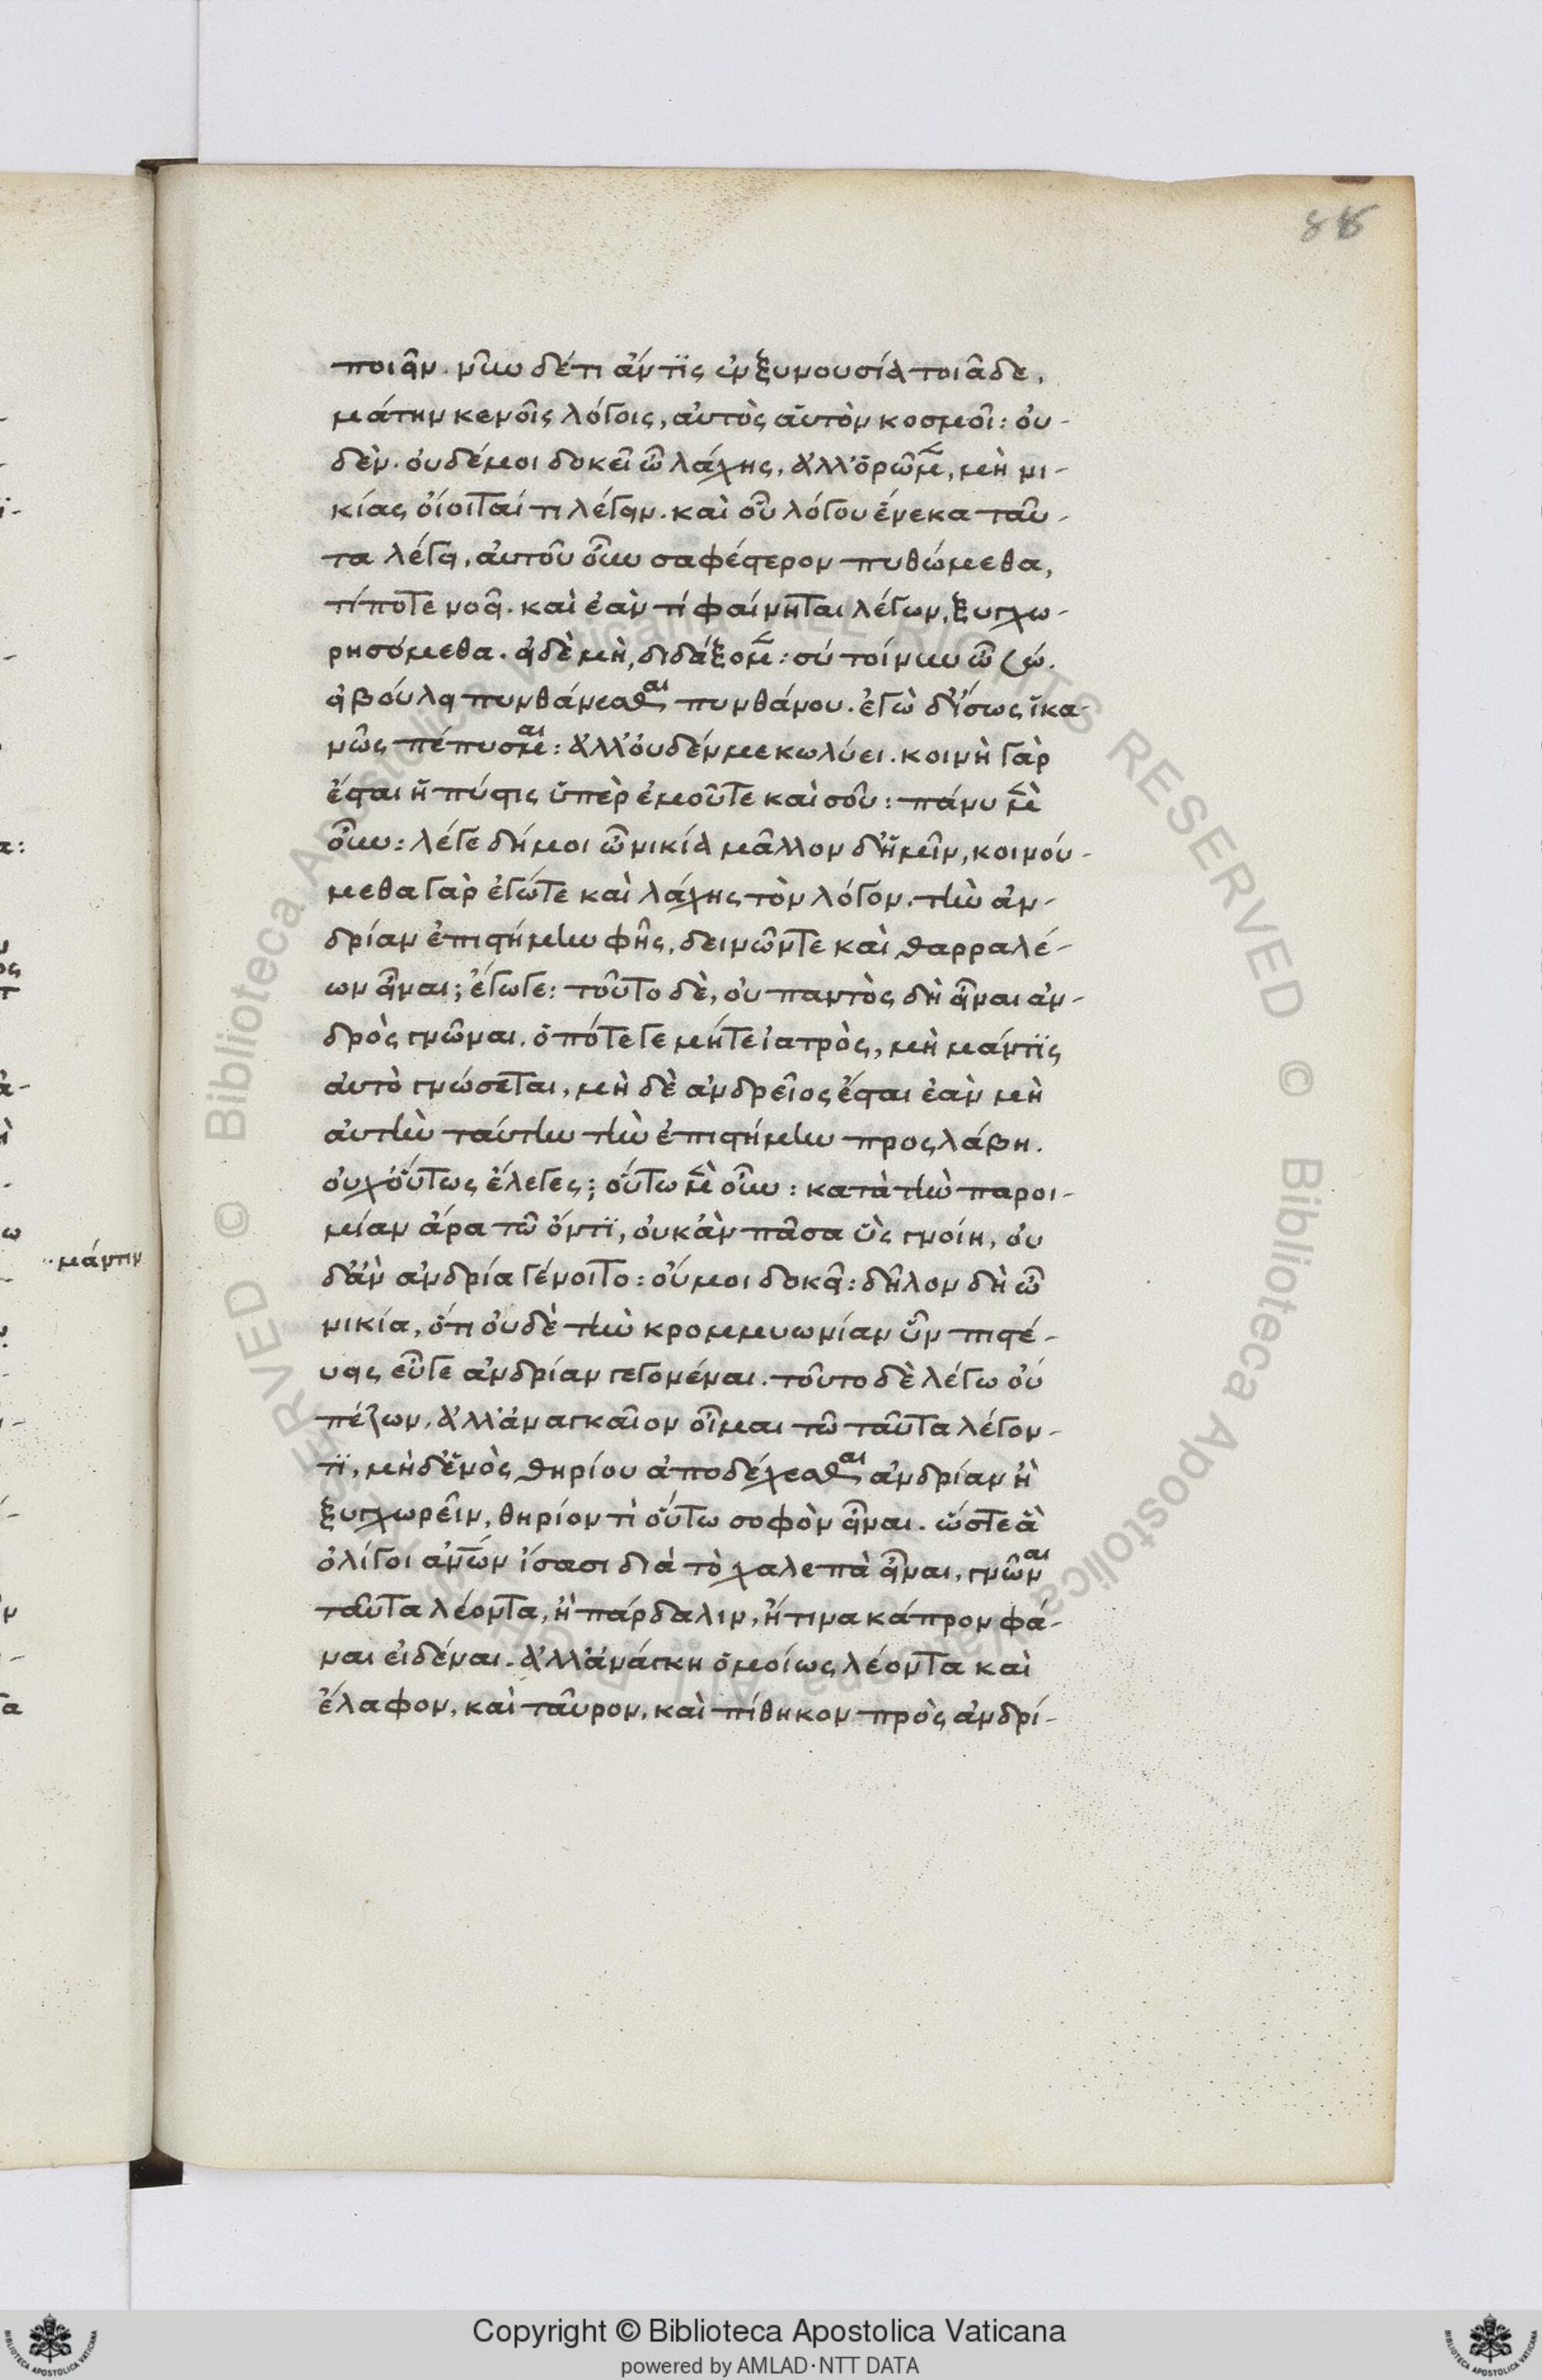 88
ποιεῖν. νῦν δέ τι ἄν τϊς ἐν ξυνουσία τοιᾶδε,
μάτην κενοῖς λόγοις, αὐτὸς αὑτὸν κοσμοῖ: οὐ-
δὲν. οὐδέμοι δοκεῖ ὦ λάχης, ἀλλ' ὁρῶμ̃, μὴ νι-
κίας οἴοιταί τι λέγειν. καὶ οὐ λόγου ἕνεκα ταῦ-
τα λέγει, αὐτοῦ οὖν σαφέστερον πυθώμεθα,
τί ποτε νοεῖ. καὶ ἐὰν τί φαίνηται λέγων, ξυγχω-
ρησόμεθα. εἰ δὲ μὴ, διδάξομ̃: σύ τοίνυν ὦ σώ.
εἰ βούλει πυνθάνεσθαι πυνθάνου. ἐγὼ δ' ἴσως ἱκα-
νῶς πέπυσμαι: ἀλλ' οὐδέν με κωλύει. κοινὴ γὰρ
ἔσται ἡ πύστις ὑπὲρ ἐμοῦ τε καὶ σοῦ: πάνυ μὲ
οὖν: λέγε δή μοι ὦ νικία μᾶλλον δ' ἡμῖν, κοινού-
μεθα γὰρ ἐγώ τε καὶ λάχης τὸν λόγον. τὴν ἀν-
δρίαν ἐπιστήμην φῆς, δεινῶν τε καὶ θαρραλέ-
ων εἶναι; ἔγωγε: τοῦτο δὲ, οὐ παντὸς δὴ εἶναι ἀν-
δρὸς γνῶναι. ὁπότε γε μήτε ἰατρὸς, μὴ μάντϊς
αὐτὸ γνώσεται, μὴ δὲ ἀνδρεῖος ἔσται ἐὰν μὴ
αὐτὴν ταύτην τὴν ἐπιστήμην προςλάβη.
οὐχ' οὕτως ἔλεγες; οὕτω μὲ οὖν: κατὰ τὴν παροι-
μίαν ἄρα τῶ ὄντϊ, οὐκ ἂν πᾶσα ὗς γνοίη, οὐ
δ' ἂν ἀνδρία γένοιτο: οὔ μοι δοκεῖ: δῆλον δὴ ὦ
νικία, ὅτι οὐδὲ τὴν κρομμυωνίαν ὗν πιστέ-
υεις εὖ γε ἀνδρίαν γεγονέναι. τοῦτο δὲ λέγω οὐ
πέζων, ἀλλ' ἀναγκαῖον οἶμαι τῶ ταῦτα λέγον-
τϊ, μὴδἑνὸς θηρίου ἀποδέχεσθαι ἀνδρίαν ἢ
ξυγχωρεῖν, θηρίον τὶ οὕτω σοφὸν εἶναι. ὥστε ἃ
ὀλίγοι ἀνων ἴσασι διὰ τὸ χαλεπὰ εἶναι, γνῶναι
ταῦτα λέοντα, ἢ πάρδαλιν, ἤ τινα κάπρον φά-
ναι εἰδέναι. ἀλλ' ἀνάγκη ὁμοίως λέοντα καὶ
ἔλαφον, καὶ ταῦρον, καὶ πίθηκον πρὸς ἀνδρί-
μάντιν
Copyright © Biblioteca Apostolica Vaticana
powered by AMLAD·NTT DATA